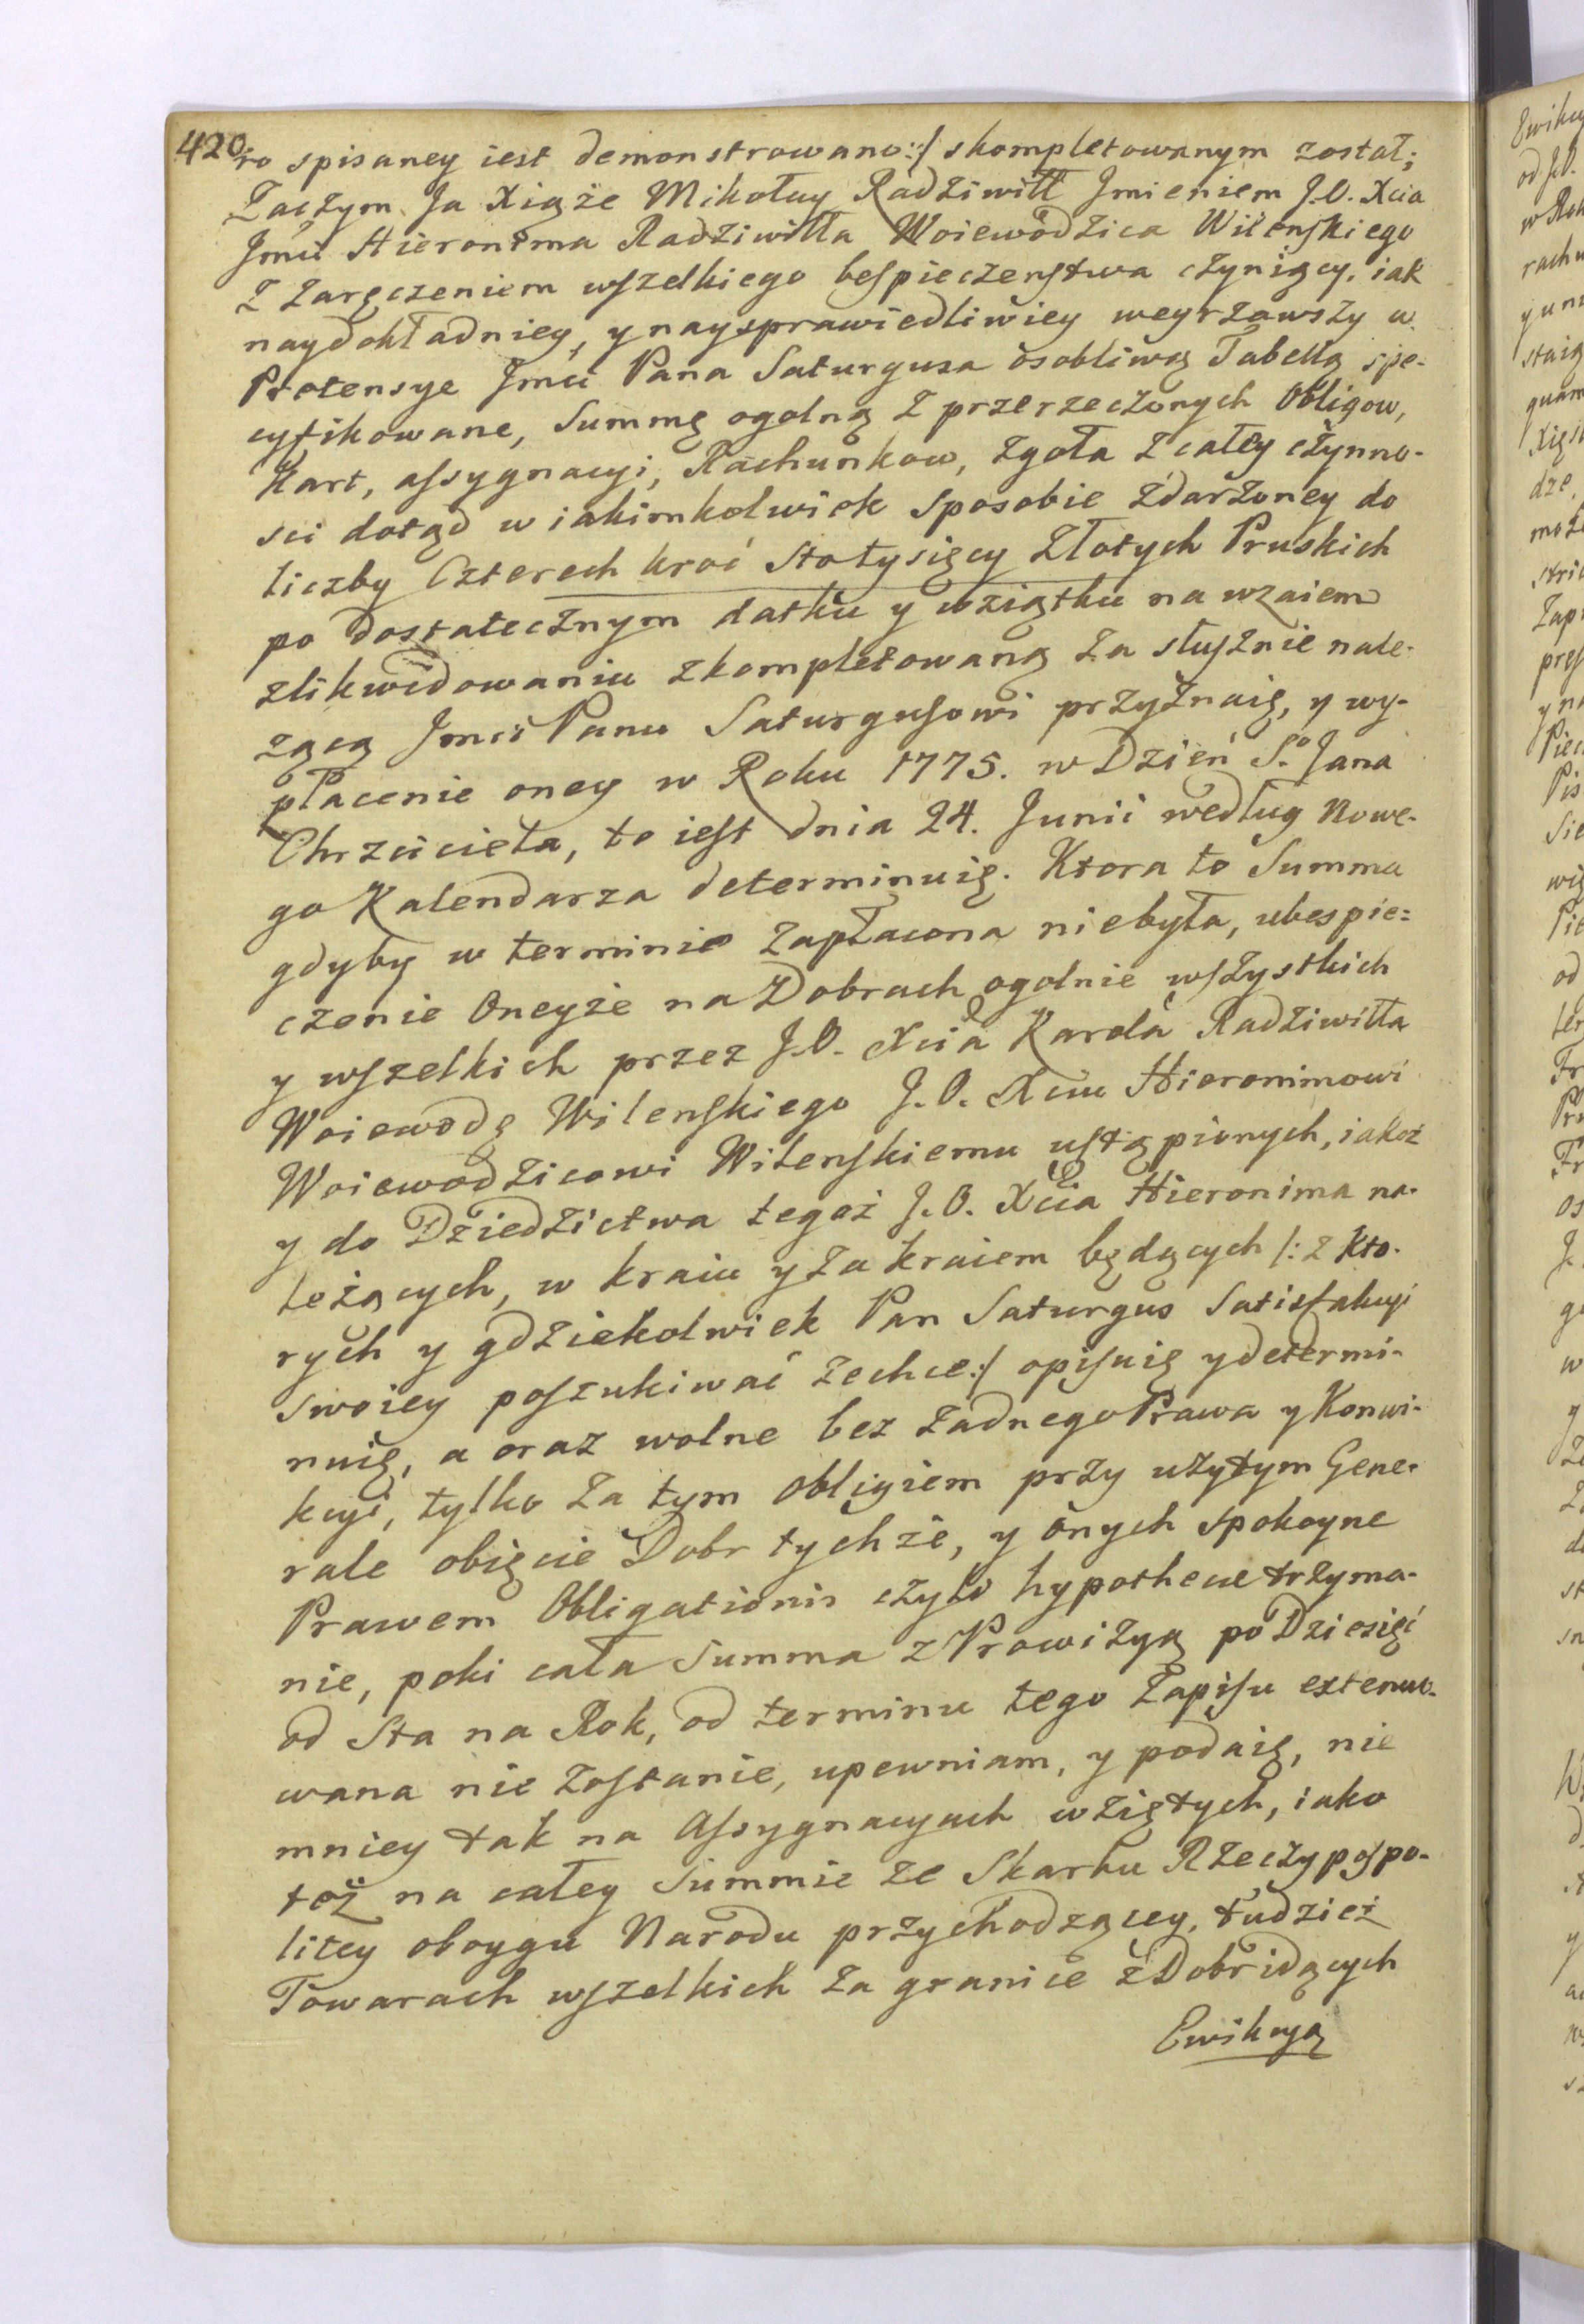 420.
ro spisaney iest demonstrowano:/ skompletowanym został;
Zaczym Ja Xiąże Mikołay Radziwiłł Jmieniem J.O. Xcia
Jmci Hieronima Radziwiłła Woiewodzica Wilenskiego
z zaręczeniem wszelkiego bespieczenstwa czyniący, iak
naydokładniey, y naysprawiedliwiey weyrzawszy w
Pretensye Jmci Pana Saturgusa osobliwą Tabellą spe-
cyfikowane, Summę ogolną z przerzeczonych Obligow,
Kart, assygnacyi, Rachunkow, zgoła z całey czynno-
sci dotąd w iakimkolwiek sposobie zdarzoney do
liczby Czterech kroć Stotysięcy Złotych Pruskich
po dostatecznym datku y wziątku na wzaiem
zlikwidowaniu zkompletowaną za słusznie nale-
zącą Jmci Panu Saturgusowi przyznaię, y wy-
płacenie oney w Roku 1775. w Dzień S.o Jana
Chrzciciela, to iest dnia 24. Junii według Nowe-
go Kalendarza determinuię. Ktora to Summa
gdyby w terminie zapłacona niebyła, ubespie=
czenie Oneyże na Dobrach ogolnie wszystkich
y wszelkich przez J.O. Xcia Karola Radziwiłła
Woiewodę Wilenskiego J.O. Xciu Hieronimowi
Woiewodzicowi Wilenskiemu ustąpionych, iakoż
y do Dziedzictwa tegoż J.O. Xcia Hieronima na-
leżących, w kraiu y za kraiem będących /: z kto-
rych y gdziekolwiek Pan Saturgus Satisfakcyi
swoiey poszukiwać zechce:/ opisuię y determi-
nuię, a oraz wolne bez żadnego Prawa y Konwi-
kcyi, tylko za tym obligiem przy użytym Gene-
rale obięcie Dobr tychże, y onych spokoyne
Prawem Obligationis czyli hypothecae trzyma-
nie, poki cała Summa z Prowizyą po Dziesięć
od Sta na Rok, od terminu tego Zapisu extenuo-
wana nie zostanie, upewniam, y podaię, nie
mniey tak na Assygnacyach wziętych, iako
też na całey Summie ze Skarbu Rzeczypospo-
litey oboygu Narodu przychodzącey, tudzież
Towarach wszelkich za granice z Dobr idących
Ewikcyą